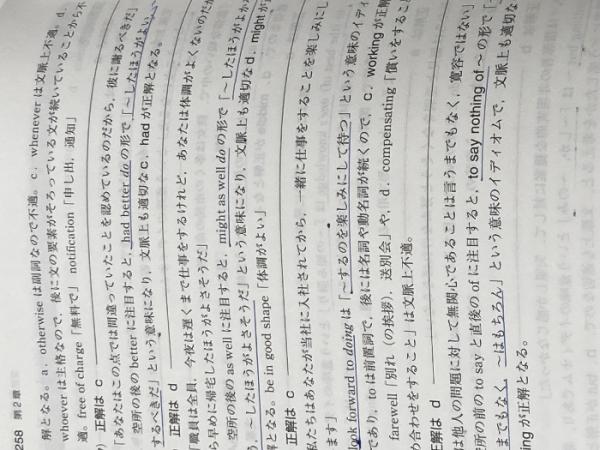 258 第2章
解となる。a. otherwise は副詞なので不適。c. whenever は文脈上不適。d.
whoever は主格なので、後に文の要素がそろっている文が続いていることから不
適。free of charge「無料で」 notification「申し出, 通知」
) 正解は c
「あなたはこの点では間違っていたことを認めているのだから, 彼に謝るべきだ」
空所の後の better に注目すると, had better do の形で「～したほうがよい,
するべきだ」という意味になり, 文脈上も適切なc. had が正解となる。
) 正解は d
「職員は全員, 今夜は遅くまで仕事をするけれど, あなたは体調がよくないのだか
ら早めに帰宅したほうがよさそうだ」
空所の後の as well に注目すると, might as well do の形で「～したほうがよかろ
う, ～したほうがよさそうだ」という意味になり, 文脈上も適切なd. might が正
解となる。be in good shape「体調がよい」
正解は c
私たちはあなたが当社に入社されてから, 一緒に仕事をすることを楽しみにし
ます」
look forward to doing は「～するのを楽しみにして待つ」という意味のイディ
であり, to は前置詞で, 後には名詞や動名詞が続くので, c. working が正解
farewell「別れ（の挨拶), 送別会」や, d. compensating「償いをすること
め合わせをすること」は文脈上不適。
正解は d
は他人の問題に対して無関心であることは言うまでもなく, 寛容ではない」
所の前の to say と直後の of に注目すると, to say nothing of ～ の形で「
までもなく, ～はもちろん」という意味のイディオムで, 文脈上も適切な
ing が正解となる。